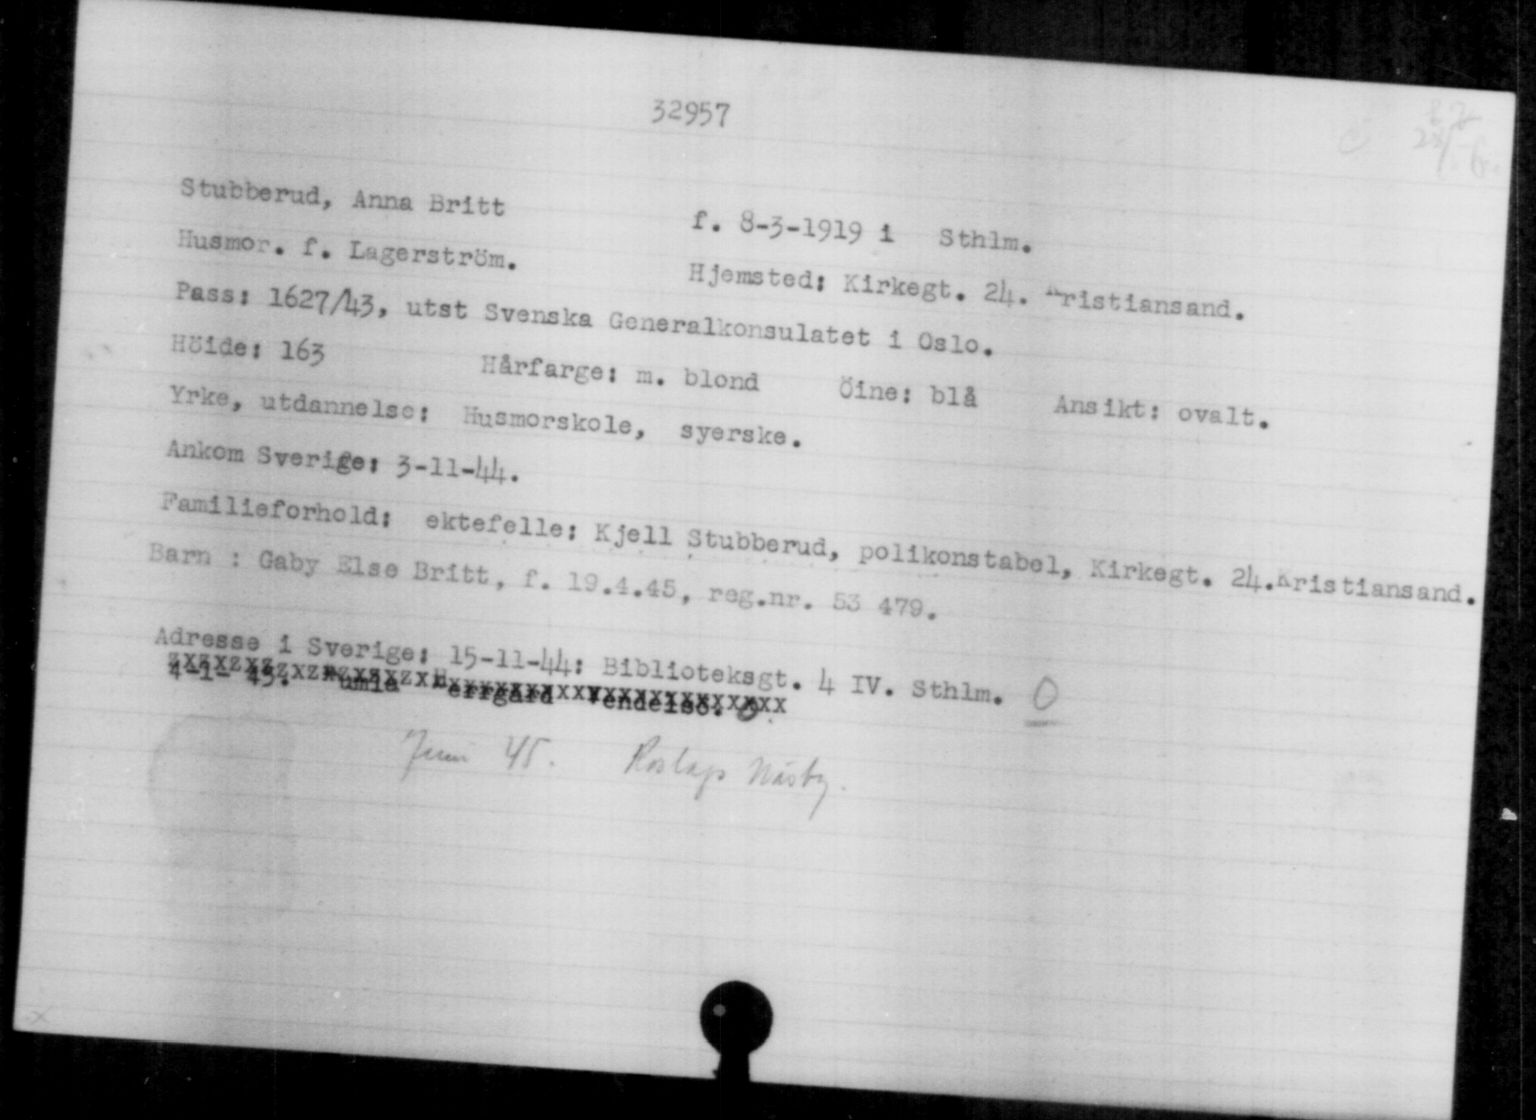 32957
Stubberud, Anna Britt f. 8-3-1919 i Sthlm.
Husmor. f. Lagerström. Hjemsted: Kirkegt. 24. Kristiansand.
Pass: 1627/43, utst Svenska Generalkonsulatet i Oslo.
Höide: 163 Hårfarge: m. blond Öine: blå Ansikt: ovalt.
Yrke, utdannelse: Husmorskole, syerske.
Ankom Sverige: 3-11-44.
Familieforhold: ektefelle: Kjell Stubberud, polikonstabel, Kirkegt. 24.Kristiansand.
Barn : Gaby Else Britt, f. 19.4.45, reg.nr. 53 479.
Adresse i Sverige: 15-11-44: Biblioteksgt. 4 IV. Sthlm. O
4-1- 45. Herrgård Vendelsö.
Juni 45. Roslags Näsby.